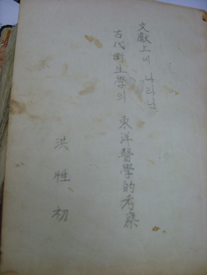 文獻上에 나타난
古代衛生學의
東洋醫學的考察
洪性初